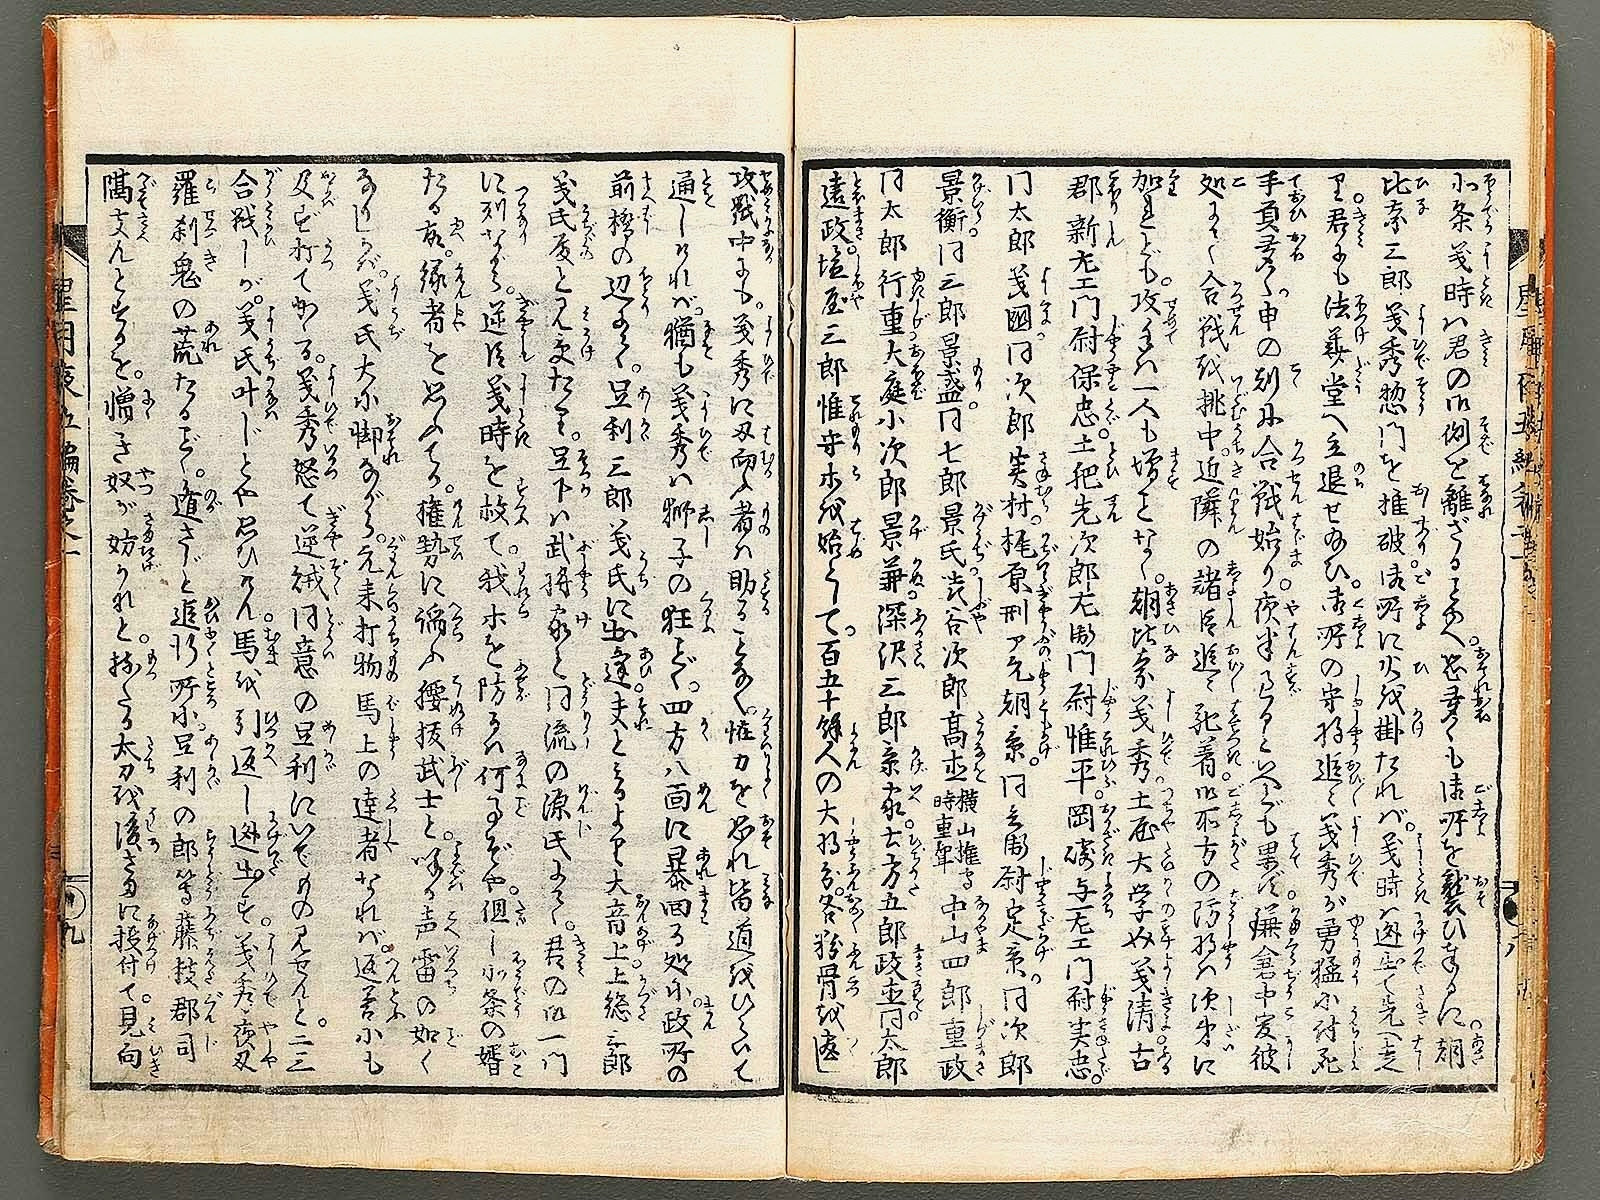 北条義時ハ君の御側を離ざることなく。恐多くも御所を襲ひ奉るに。朝
比奈三郎義秀惣門を推破。御所に火を掛たれバ。義時ハ逃出て先へ走
り君にも法華堂へ立退せ給ひ。御所の守将追々義秀が勇猛に討死
手負多く。申の刻に合戦始り。夜半になるといへども果ず。鎌倉中爰彼
処にて合戦を挑中。近隣の諸臣追々死着御所方の防将ハ次第に
加れども。攻手ハ一人も増ことなく。朝比奈義秀土屋大学助義清古
郡新左エ門尉保忠。土肥先次郎左衛門尉惟平岡崎与左エ門尉実忠。
同太郎義国同次郎実村。梶原刑ア允朝景。同兵衛尉定景同次郎
景衡同三郎景盛同七郎景氏渋谷次郎高重横山権守時重聟中山四郎重政
同太郎行重大庭小次郎景兼深沢三郎景家大方五郎政直同太郎
遠政。塩屋三郎惟守等を始として百五十余人の大将分。各粉骨を尽し
攻戦中にも。義秀に刃向ふ者ハ助ることなく。惟力を恐れ皆道をひらいて
通しけれバ。猶も義秀ハ獅子の狂ごとく。四方八面に暴回る処に。政所の
前橋の辺にて。足利三郎義氏に出逢。夫とみるより大音上。上総三郎
義氏殿と見受たり。足下ハ武将家と同流の源氏にて。君の御一門
に列ながら。逆臣義時を救て。我等を防るハ何事ぞや。但し北条の婿
たる故。縁者を思ふてか。権勢に諂ふ腰抜武士と。呼る声雷の如く
なりしかバ。義氏大に脚ながら。元来打物馬上の達者なれバ。返答にも
及ず打てかかる。義秀怒て逆賊同意の足利にいでもの見せんと。二三
合戦しが。義氏叶じとや思ひけん馬を引返し逃出す。義秀夜刃
羅刹鬼の荒たるごとく。遁さじと追行所に。足利の郎等藤枝郡司
隔支んとするを。憎き奴が妨かれと。持たる太刀を後さまに投付て。見向
星月夜五編巻之一
九